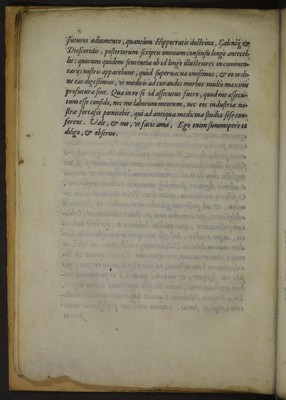 futuros adiumento, quantum Hippocratis doctrina, Galeniq́; &
Dioscoridis, posteriorum scriptis omnium consensu longè antecel-
lit: quorum quidem sententiæ ob id longè illustriores in commen-
tarijs nostris apparebunt, quòd superuacua omisimus, & eo ordi-
ne eas digessimus, vt medicis ad curandos morbos multo maximè
profuturæ sint. Qua in re si id assecutus fuero, quod me assecu-
tum esse confido, nec me laborum meorum, nec eos industriæ no-
stræ fortasse pœnitebit, qui ad antiqua medicinæ studia sese con-
ferent. Vale, & me, vt facis ama, Ego enim summopere te
diligo, & obseruo.